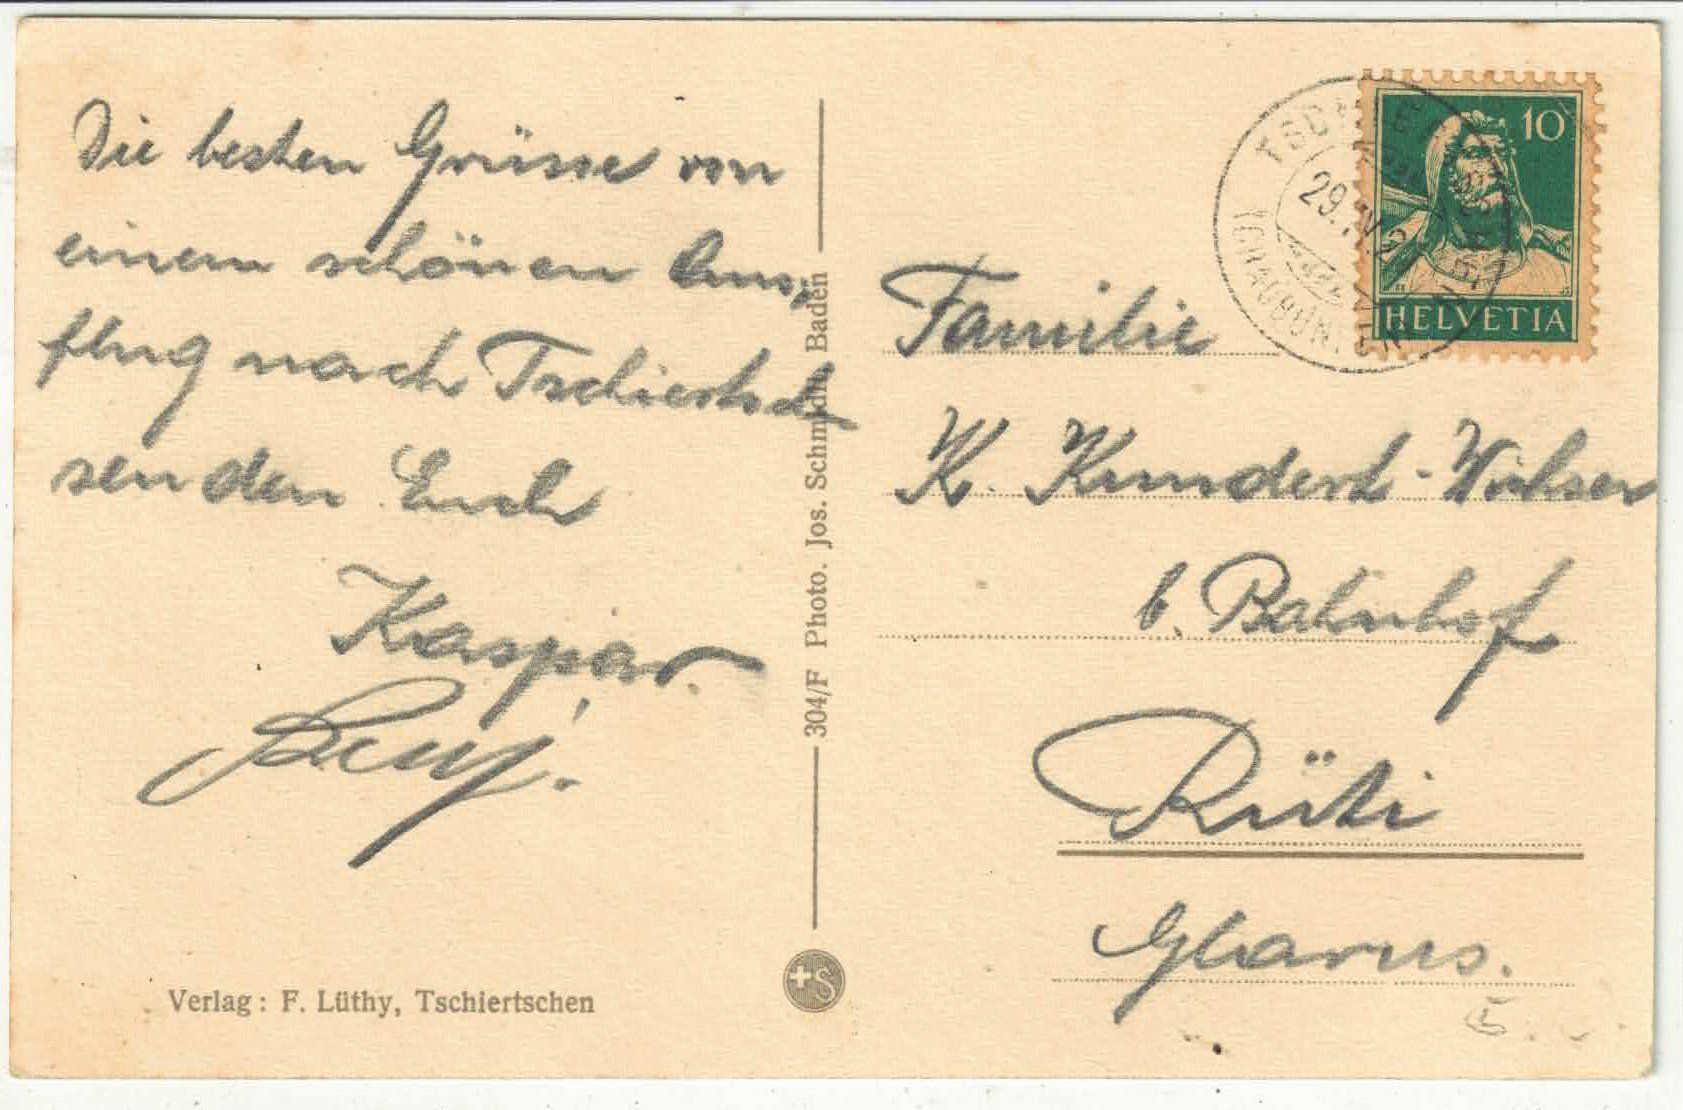 Die besten Grüsse von
einem schönen Aus-
flug nach Tschiertsch
senden Euch
Kaspar.
304/F Photo. Jos. Schmidt, Baden
Verlag: F. Lüthy, Tschiertschen
10
HELVETIA
29. IV. 2
(GRAUBÜNDEN)
Familie
K. Kundert-Wichser
b. Bahnhof
Rüti
Glarus.